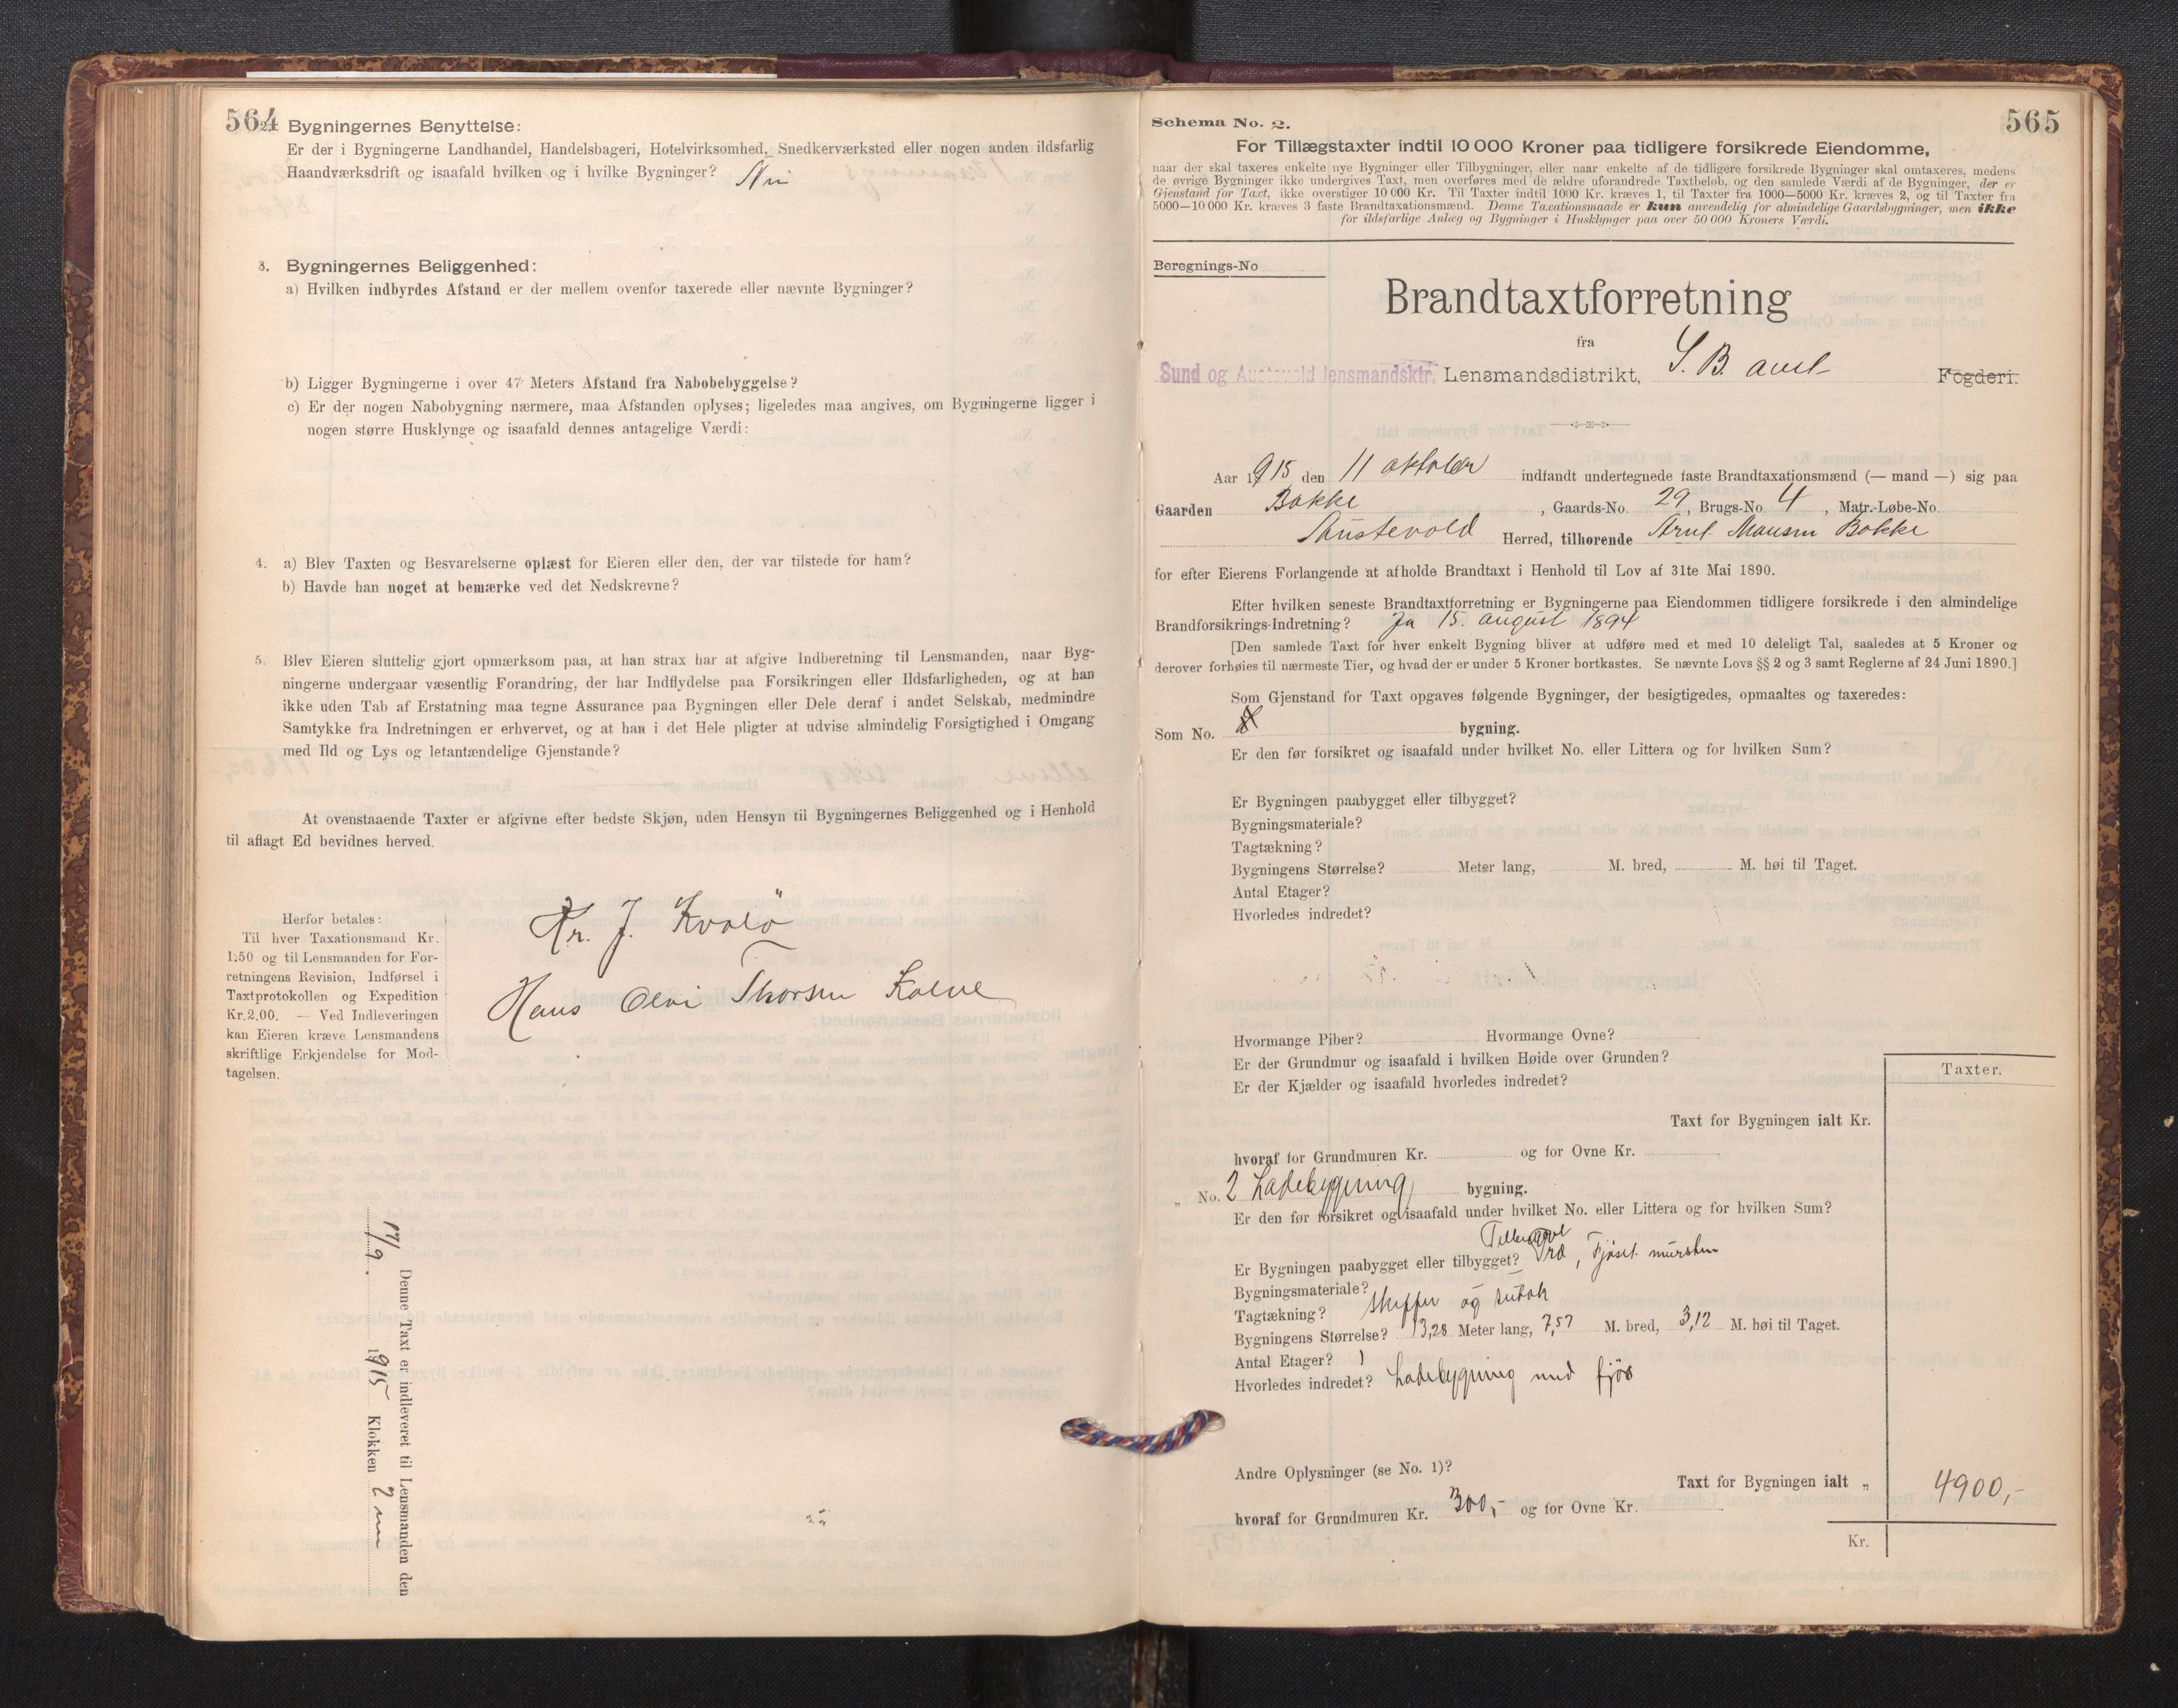 564
2. Bygningernes Benyttelse:
Er der i Bygningerne Landhandel, Handelsbageri, Hotelvirksomhed, Snedkerværksted eller nogen anden ildsfarlig
Haandværksdrift og isaafald hvilken og i hvilke Bygninger? Nei
3. Bygningernes Beliggenhed:
a) Hvilken indbyrdes Afstand er der mellem ovenfor taxerede eller nævnte Bygninger?
b) Ligger Bygningerne i over 47 Meters Afstand fra Nabobebyggelse?
c) Er der nogen Nabobygning nærmere, maa Afstanden oplyses; ligeledes maa angives, om Bygningerne ligger i
nogen større Husklynge og isaafald dennes antagelige Værdi:
4. a) Blev Taxten og Besvarelserne oplæst for Eieren eller den, der var tilstede for ham?
b) Havde han noget at bemærke ved det Nedskrevne?
5. Blev Eieren sluttelig gjort opmærksom paa, at han strax har at afgive Indberetning til Lensmanden, naar Byg-
ningerne undergaar væsentlig Forandring, der har Indflydelse paa Forsikringen eller Ildsfarligheden, og at han
ikke uden Tab af Erstatning maa tegne Assurance paa Bygningen eller Dele deraf i andet Selskab, medmindre
Samtykke fra Indretningen er erhvervet, og at han i det Hele pligter at udvise almindelig Forsigtighed i Omgang
med Ild og Lys og letantændelige Gjenstande?
At ovenstaaende Taxter er afgivne efter bedste Skjøn, uden Hensyn til Bygningernes Beliggenhed og i Henhold
til aflagt Ed bevidnes herved.
Herfor betales:
Til hver Taxationsmand Kr.
1.50 og til Lensmanden for For-
retningens Revision, Indførsel i
Taxtprotokollen og Expedition
Kr.2.00. — Ved Indleveringen
kan Eieren kræve Lensmandens
skriftlige Erkjendelse for Mod-
tagelsen.
Hr. J. Kvalö
Hans Olai Thorsen
Denne Taxt er indleveret til Lensmanden den
17/9. 1915 Klokken 2
565
Schema No. 2.
For Tillægstaxter indtil 10 000 Kroner paa tidligere forsikrede Eiendomme,
naar der skal taxeres enkelte nye Bygninger eller Tilbygninger, eller naar enkelte af de tidligere forsikrede Bygninger skal omtaxeres, medens
de øvrige Bygninger ikke undergives Taxt, men overføres med de ældre uforandrede Taxtbeløb, og den samlede Værdi af de Bygninger, der er
Gjenstand for Taxt, ikke overstiger 10 000 Kr. Til Taxter indtil 1000 Kr. kræves 1, til Taxter fra 1000—5000 Kr. kræves 2, og til Taxter fra
5000—10 000 Kr. kræves 3 faste Brandtaxationsmænd. Denne Taxationsmaade er kun anvendelig for almindelige Gaardsbygninger, men ikke
for ildsfarlige Anlæg og Bygninger i Husklynger paa over 50 000 Kroners Værdi.
Beregnings-No
Brandtaxtforretning
fra
Sund og Austevold lensmandsktr. Lensmandsdistrikt, S. B. amt Fogderi.
Aar 1915 den 11 oktober indfandt undertegnede faste Brandtaxationsmænd (— mand —) sig paa
Gaarden Bakke, Gaards-No. 29, Brugs-No. 4, Matr.-Løbe-No.
Austevold Herred, tilhørende Arnt Monsen Bakke
for efter Eierens Forlangende at afholde Brandtaxt i Henhold til Lov af 31te Mai 1890.
Efter hvilken seneste Brandtaxtforretning er Bygningerne paa Eiendommen tidligere forsikrede i den almindelige
Brandforsikrings-Indretning? Ja 15. august 1894
[Den samlede Taxt for hver enkelt Bygning bliver at udføre med et med 10 deleligt Tal, saaledes at 5 Kroner og
derover forhøies til nærmeste Tier, og hvad der er under 5 Kroner bortkastes. Se nævnte Lovs §§ 2 og 3 samt Reglerne af 24 Juni 1890.]
Som Gjenstand for Taxt opgaves følgende Bygninger, der besigtigedes, opmaaltes og taxeredes:
Som No. bygning.
Er den før forsikret og isaafald under hvilket No. eller Littera og for hvilken Sum?
Er Bygningen paabygget eller tilbygget?
Bygningsmateriale?
Tagtækning?
Bygningens Størrelse? Meter lang, M. bred, M. høi til Taget.
Antal Etager?
Hvorledes indredet?
Hvormange Piber? Hvormange Ovne?
Er der Grundmur og isaafald i hvilken Høide over Grunden?
Er der Kjælder og isaafald hvorledes indredet?
Taxter.
Taxt for Bygningen ialt Kr.
hvoraf for Grundmuren Kr. og for Ovne Kr.
„ No. 2 Ladebygning bygning.
Er den før forsikret og isaafald under hvilket No. eller Littera og for hvilken Sum?
Tilbygget
Er Bygningen paabygget eller tilbygget? Træ, Fjöset mursten
Bygningsmateriale?
Tagtækning? Skiffer og
Bygningens Størrelse? 13,28 Meter lang, 7,57 M. bred, 3,12 M. høi til Taget.
Antal Etager? 1
Hvorledes indredet? Ladebygning med fjös
Andre Oplysninger (se No. 1)?
Taxt for Bygningen ialt „ 4900,-
hvoraf for Grundmuren Kr. 300,- og for Ovne Kr.
Kr.